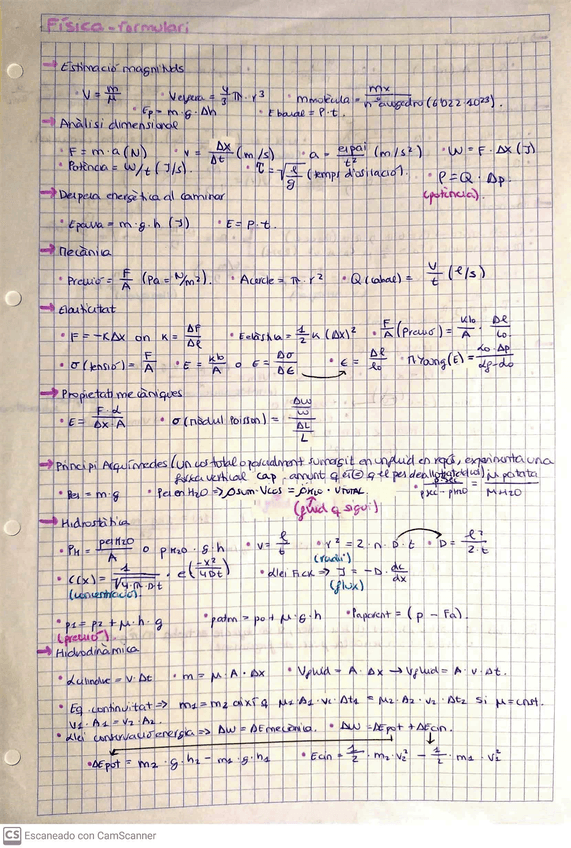 Física - formulari
→ Estimació magnituds
• V = m/μ • Vesfera = 4/3 π · r³ • mmolècula = mx / nº avogadro (6'022·1023).
• Ep = m·g·Δh • Ebasal = P·t.
→ Anàlisi dimensional
• F = m·a (N) • v = Δx/Δt (m/s) • a = espai/t² (m/s²) • W = F·Δx (J)
• Potència = W/t (J/s). • τ = √(l/g) (temps d'oscilació). • P = Q · Δp.
(potència).
→ Despesa energètica al caminar
• = m·g·h (J) • E = P·t.
→ Mecànica
• Pressió = F/A (Pa = N/m²). • Acercle = π·r² • Q (cabal) = V/t (l/s)
→ Elasticitat
• F = -KΔx on K = ΔF/Δl • Eelàstica = 1/2 K (Δx)² • F/A (Pressió) = kl0/A · Δl/l0
• σ (tensió) = F/A • E = kl0/A o E = Δσ/Δε • ε = Δl/l0 • M Young (E) = L0·Δp/Lf-L0
→ Propietats mecàniques
• E = F·L/Δx·A • σ (mòdul Poisson) = (ΔW/W)/(ΔL/L)
→ Principi Arquímedes (un cos total o parcialment sumergit en un fluid en repòs, experimenta una
força vertical cap amunt q és = q el pes de
• Pes = m·g • Pes en H2O ⇒ ρsum·Vcos = ρH2O · Vtotal. = μ patata / μ H2O
(fluid q sigui)
→ Hidrostàtica
• PH = pesH2O/A o ρH2O·g·h • v = l/t • r² = 2·n·D·t • D = l²/2·t
(radi)
• C(x) = 1/√(4·π·D·t) · e(-x²/4Dt) • Llei Fick ⇒ J = -D · dc/dx
(concentració). (flux)
• p1 = p2 + μ·h·g • patm = p0 + μ·g·h • Paparent = (p - Fa).
(pressió)
→ Hidrodinàmica
• Lcilindre = v·Δt • m = μ·A·Δx • Vfluid = A·Δx → Vfluid = A·v·Δt.
• Eq. continuitat ⇒ m1 = m2 així q μ1·A1·v1·Δt1 = μ2·A2·v2·Δt2 si μ = cnst.
v1·A1 = v2·A2.
• Llei conservació energia ⇒ ΔW = ΔEmecànica. • ΔW = ΔEpot + ΔEcin.
• ΔEpot = m2·g·h2 - m1·g·h1 • Ecin = 1/2·m2·v2² - 1/2·m1·v1²
CS Escaneado con CamScanner